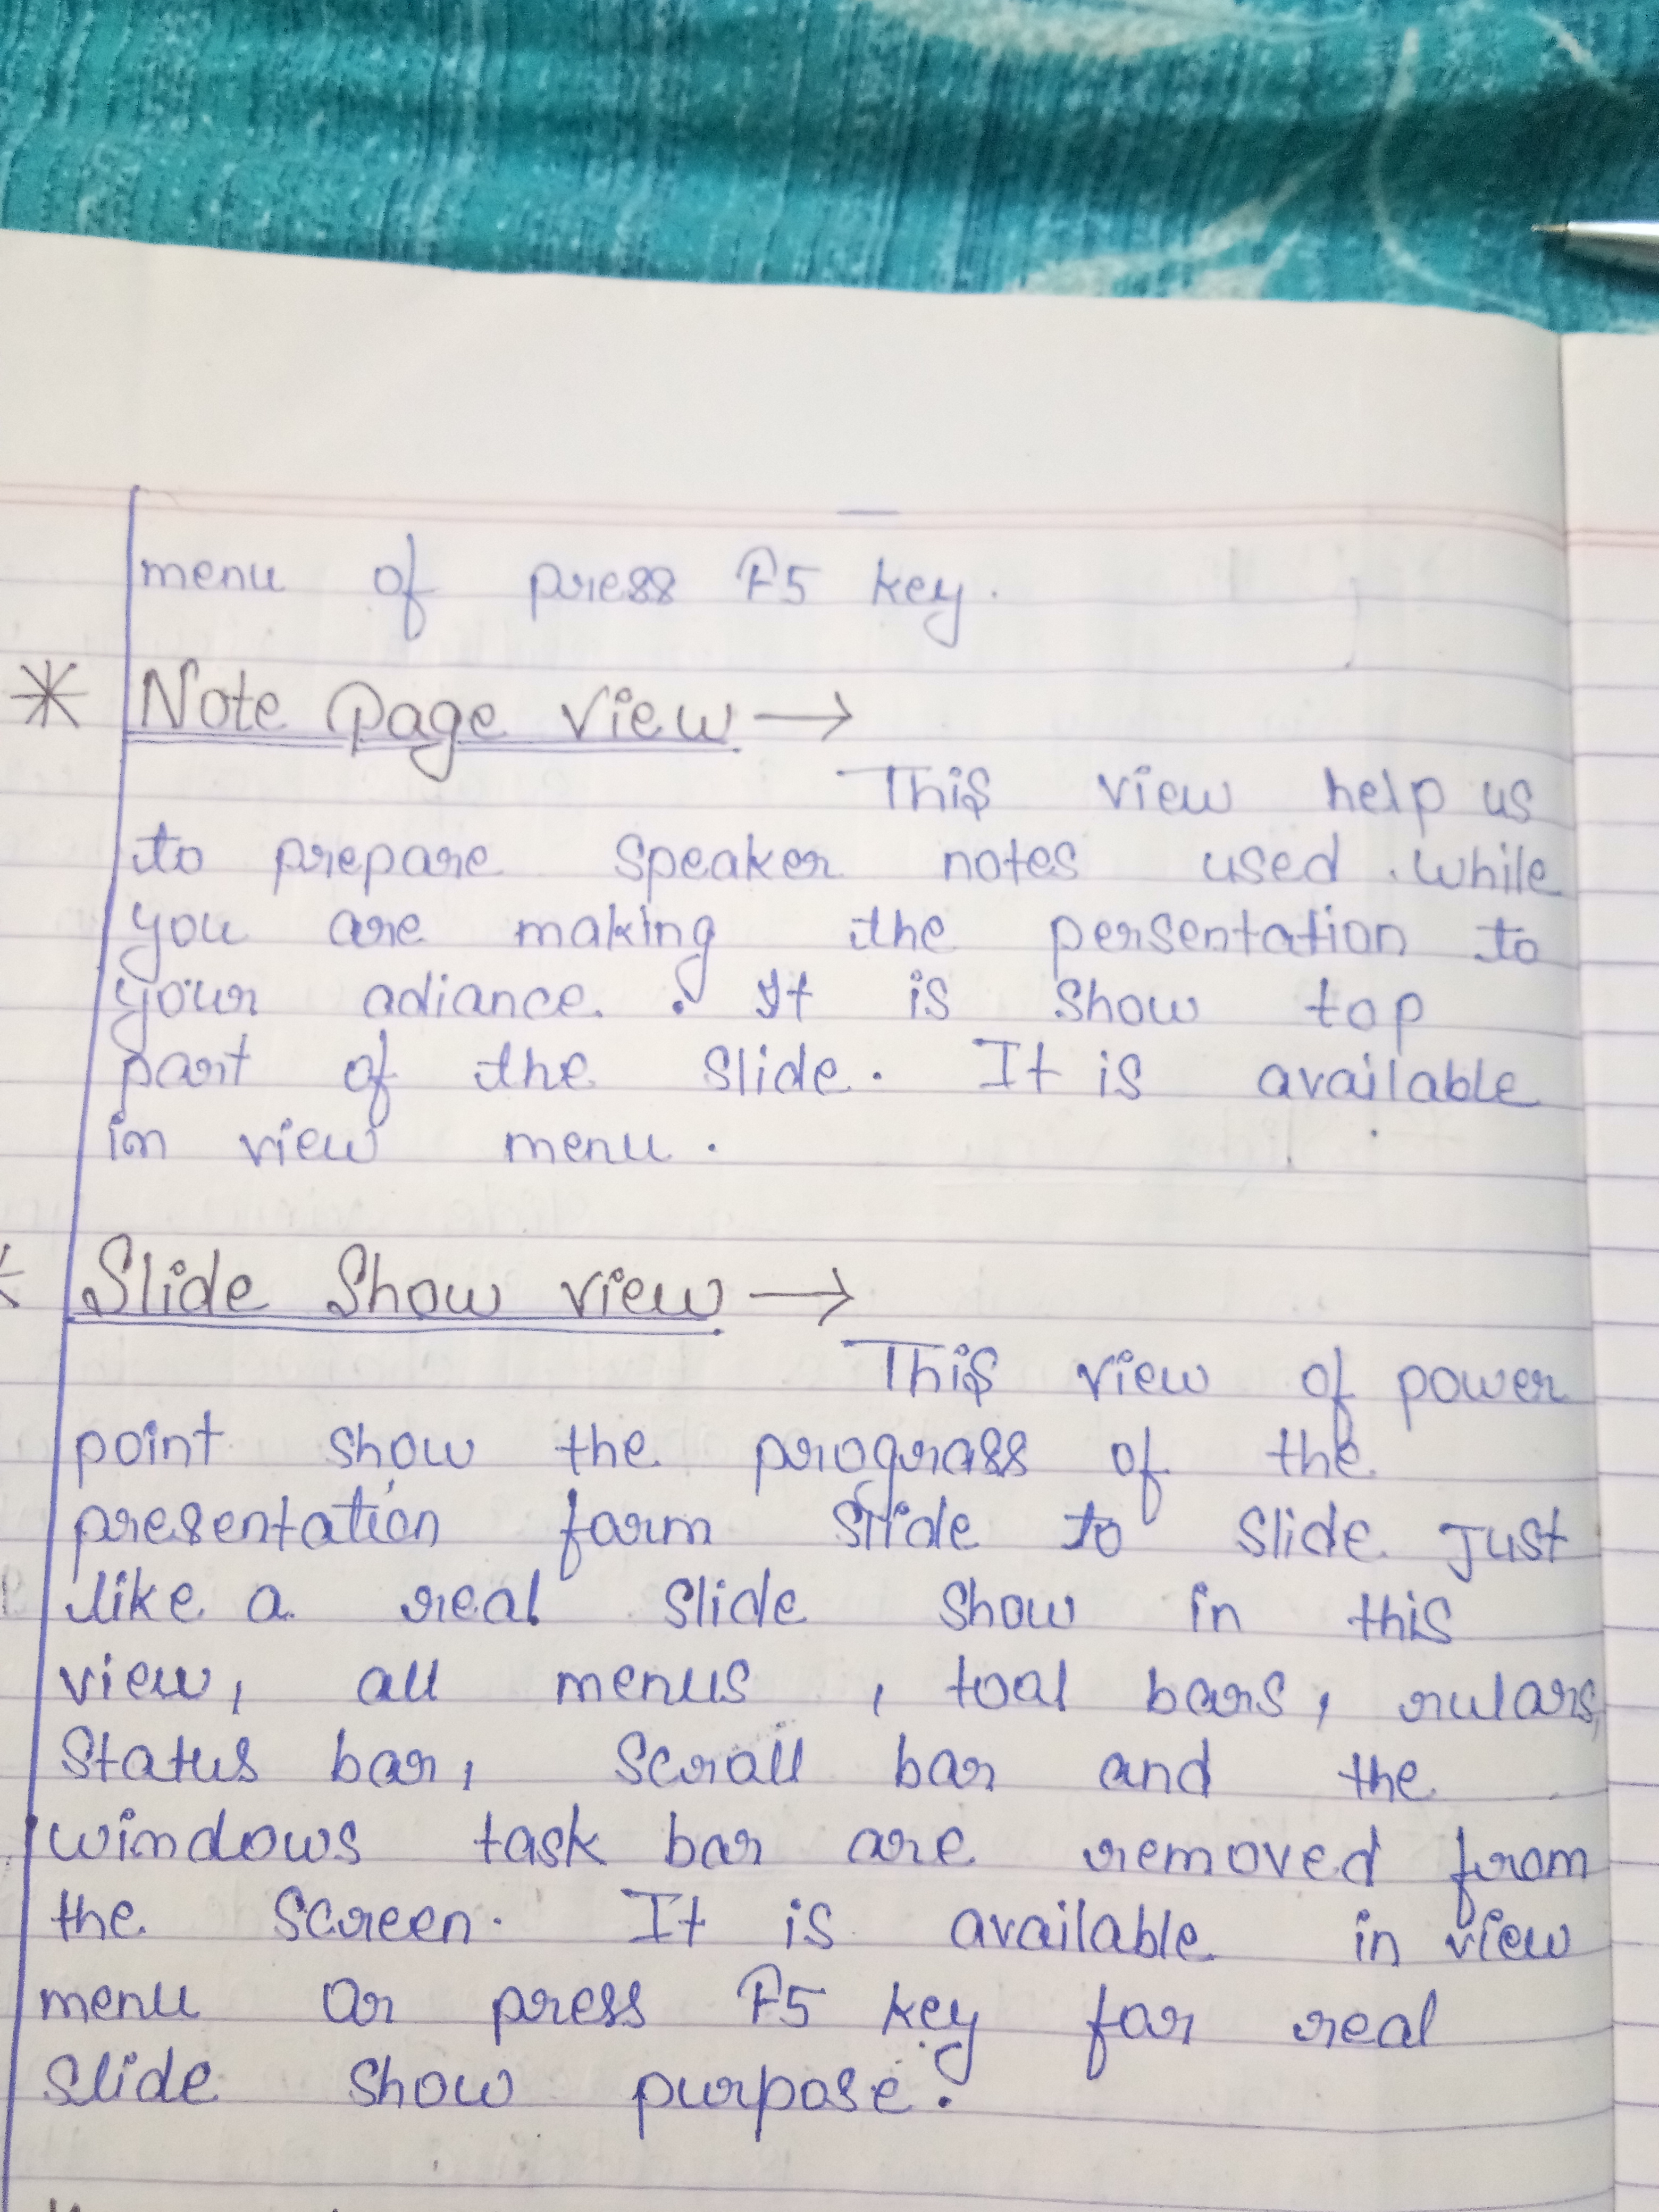 menu of press F5 key.
* Note Page view →
This view help us
to prepare speaker notes used while
you are making the persentation to
your adiance. It is show top
part of the slide. It is available
in view menu.
* Slide Show view →
This view of power
point show the prograss of the
presentation form slide to slide Just
like a real slide show in this
view, all menus, toal bars, rulars,
status bar, scrall bar and the
windows task bar are removed from
the screen. It is available in view
menu Or press F5 key for real
slide show purpose.